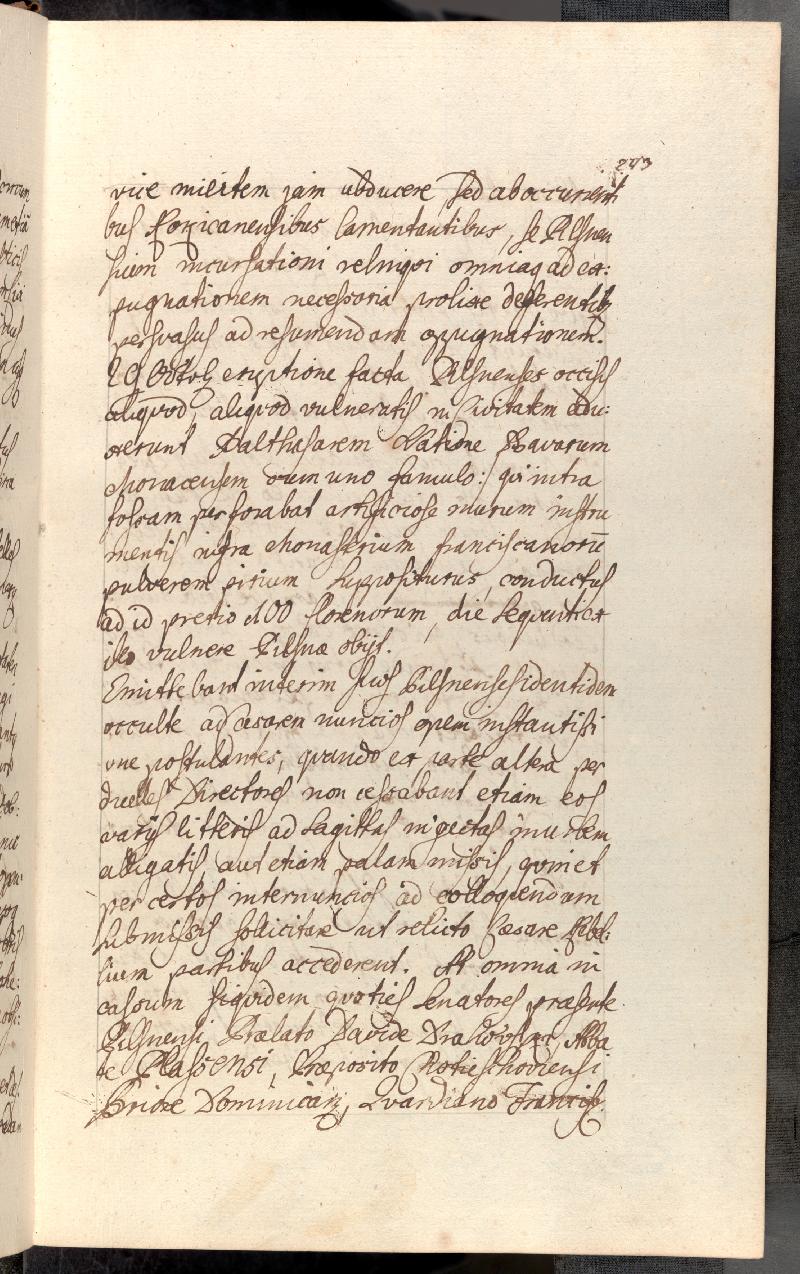 243
vice militem jam abducere sed ab occurrenti
bus Rokicanensibus lamentantibus, se Pilsnen
sium incursationi relinqvi omniaq ad ex:
pugnationem necessaria prolixe deferentib
persvasus ad resumendam oppugnationem.
29 Octob eruptione facta Pilsnenses occisis
aliqvod, aliqvod vulneratis in Civitatem addu:
xerunt Balthasarem Natione Bavarum
Monacensem cum uno famulo: qvi intra
fossam perforabat artificiose murum instru
mentis infra Monasterium franciscanorū
pulverem pirium suppositurus, conductus
ad id pretio 400 florenorum, die seqventi ex
vulnere Pilsnæ obijt.
Emittebant interim suos Pilsnenses identidem
occulte ad Cæsarem nuncios opem instantissi
me postulantes, qvando ex parte altera per
duelles Directores non cessabant etiam eos
varijs litteris ad sagittas injectas in urbem
alligatis, aut etiam palam missis, qvin et
per certos internuncios ad colloqviendum
submissis sollicitare ut relicto Cæsare Rebel:
lium partibus accederent. At omnia in
cassum siqvidem qvoties Senatores præsente
Pilsnensi Prælato Davide Abba
te Plassensi, Præposito Chotieschoviensi
Priore Dominican, Qvardiano Francisc.